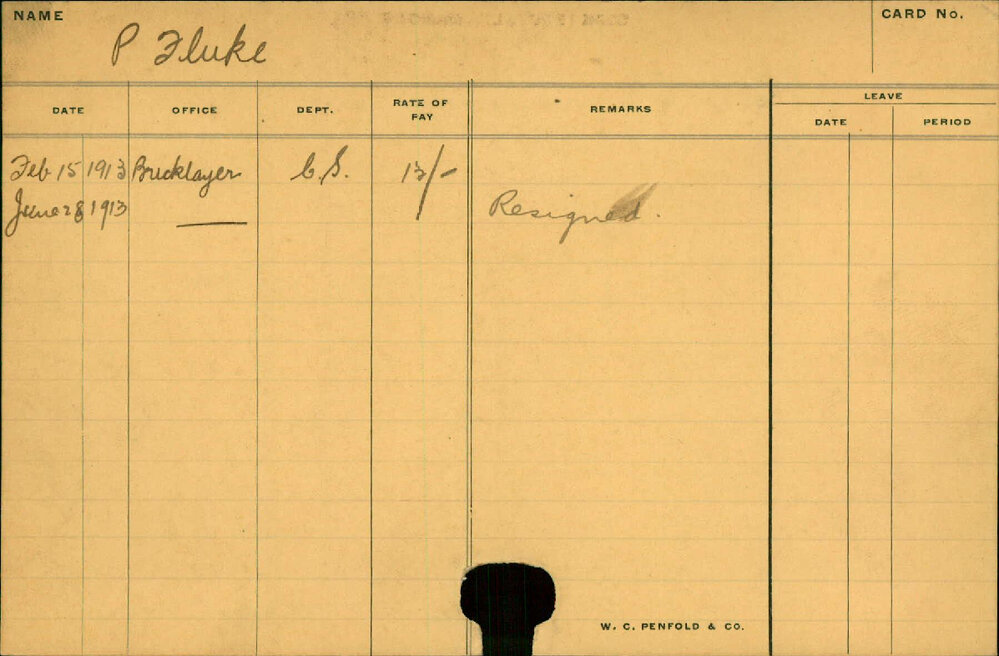 NAME
CARD No.
P Fluke
DATE OFFICE DEPT. RATE OF PAY REMARKS LEAVE
DATE PERIOD
Feb 15 1913 Bricklayer C.S. 13/-
June 28 1913 — Resigned.
W. C. PENFOLD & CO.